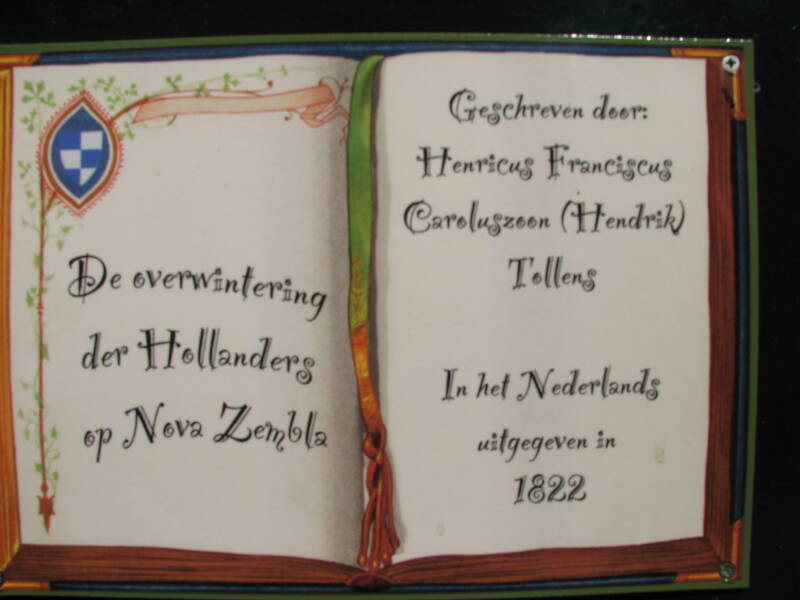 De overwintering
der Hollanders
op Nova Zembla
Geschreven door:
Henricus Franciscus
Caroluszoon (Hendrik)
Tollens
In het Nederlands
uitgegeven in
1822